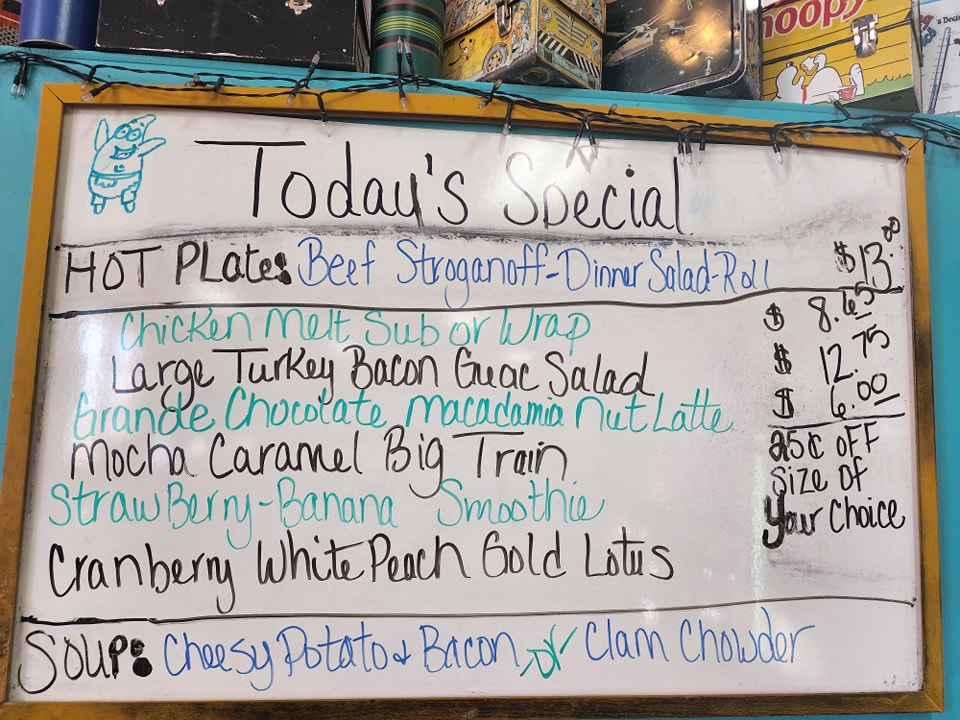 noopy
Today's Special
HOT PLate: Beef Stroganoff-Dinner Salad-Roll $13.00
Chicken Melt Sub or Wrap $ 8.65
Large Turkey Bacon Guac Salad $ 12.75
Grande Chocolate Macadamia Nut Latte $ 6.00
Mocha Caramel Big Train
25¢ OFF
Size of
Your Choice
StrawBerry-Banana Smoothie
Cranberry White Peach Gold Lotus
SOUP: Cheesy Potato & Bacon or Clam Chowder